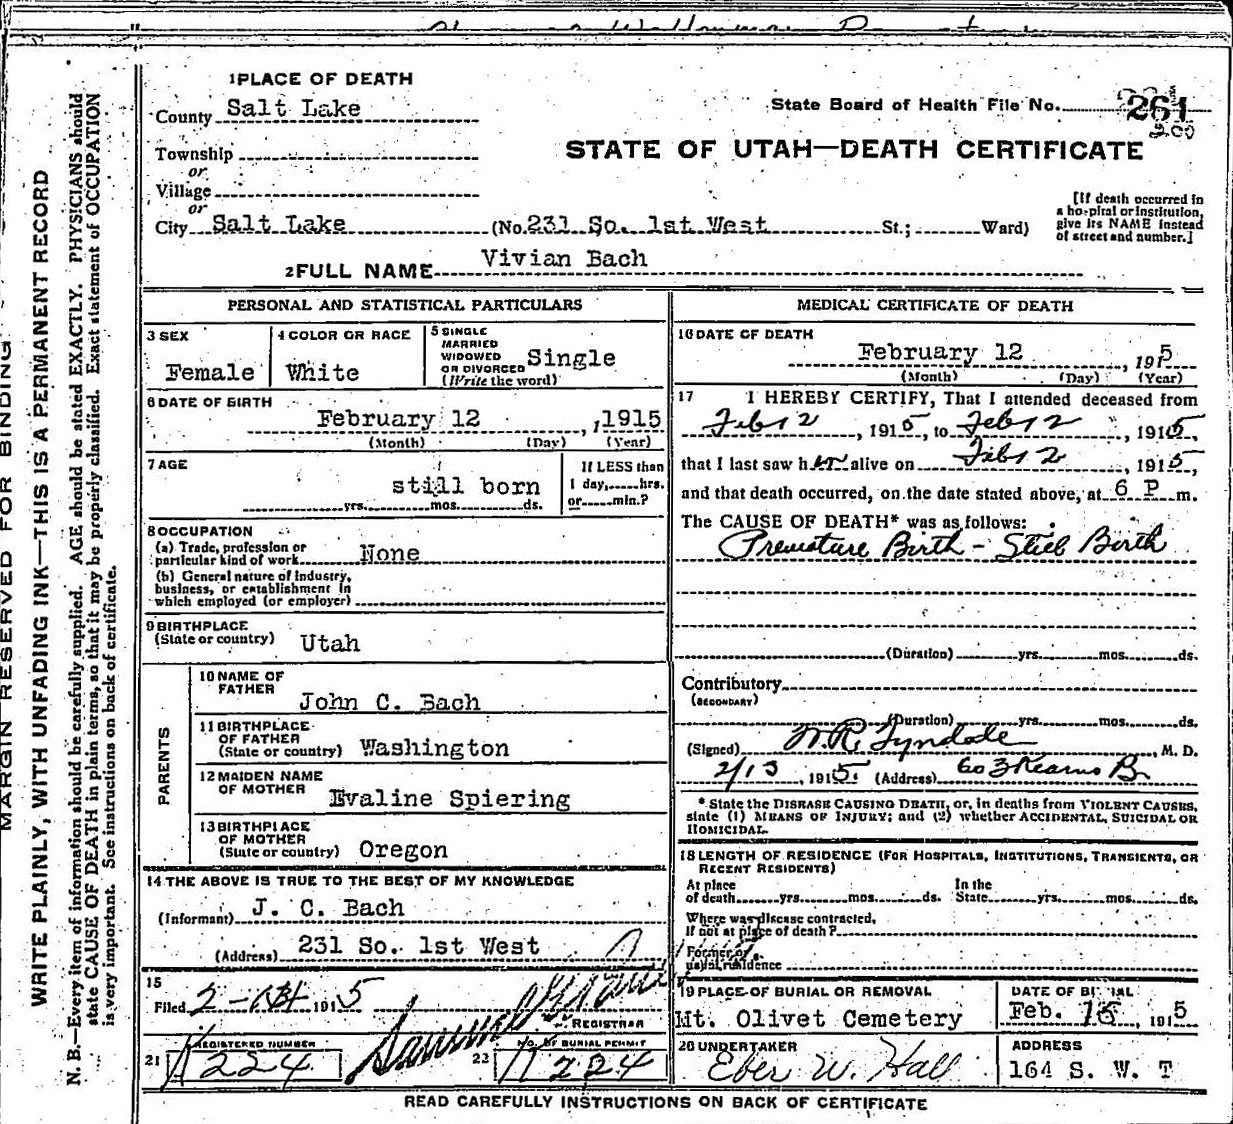 1 PLACE OF DEATH
County Salt Lake
State Board of Health File No. 261
200
STATE OF UTAH—DEATH CERTIFICATE
Township
or
Village
or
City Salt Lake (No. 231 So. 1st West St.; Ward)
[If death occurred in
a hospital or institution,
give its NAME instead
of street and number.]
2 FULL NAME Vivian Bach
PERSONAL AND STATISTICAL PARTICULARS
3 SEX
Female
4 COLOR OR RACE
White
5 SINGLE
MARRIED
WIDOWED
OR DIVORCED
(Write the word)
Single
6 DATE OF BIRTH
February 12, 1915
(Month) (Day) (Year)
7 AGE
still born
yrs. mos. ds.
If LESS than
1 day, hrs.
or min.?
8 OCCUPATION
(a) Trade, profession or
particular kind of work None
(b) General nature of Industry,
business, or establishment in
which employed (or employer)
9 BIRTHPLACE
(State or country) Utah
PARENTS
10 NAME OF
FATHER
John C. Bach
11 BIRTHPLACE
OF FATHER
(State or country) Washington
12 MAIDEN NAME
OF MOTHER Evaline Spiering
13 BIRTHPLACE
OF MOTHER
(State or country) Oregon
14 THE ABOVE IS TRUE TO THE BEST OF MY KNOWLEDGE
(Informant) J. C. Bach
(Address) 231 So. 1st West
15
Filed 2- 1915
REGISTRAR
REGISTERED NUMBER
21 224
NO. OF BURIAL PERMIT
22 224
MEDICAL CERTIFICATE OF DEATH
16 DATE OF DEATH
February 12, 1915
(Month) (Day) (Year)
17 I HEREBY CERTIFY, That I attended deceased from
Feb 12, 1915, to Feb 12, 1915,
that I last saw her alive on Feb 12, 1915,
and that death occurred, on the date stated above, at 6 P m.
The CAUSE OF DEATH* was as follows:
Premature Birth - Still Birth
(Duration) yrs. mos. ds.
Contributory
(SECONDARY)
(Duration) yrs. mos. ds.
(Signed) W. R. Tyndale, M. D.
2/13, 1915. (Address) 603 Kearns B
* State the DISEASE CAUSING DEATH, or, in deaths from VIOLENT CAUSES,
state (1) MEANS OF INJURY; and (2) whether ACCIDENTAL, SUICIDAL OR
HOMICIDAL.
18 LENGTH OF RESIDENCE (FOR HOSPITALS, INSTITUTIONS, TRANSIENTS, OR
RECENT RESIDENTS)
At place
of death yrs. mos. ds.
In the
State yrs. mos. ds.
Where was disease contracted,
If not at place of death?
Former or
usual residence
19 PLACE OF BURIAL OR REMOVAL
Mt. Olivet Cemetery
DATE OF BURIAL
Feb. 15, 1915
20 UNDERTAKER
Eber W. Hall
ADDRESS
164 S. W. T
READ CAREFULLY INSTRUCTIONS ON BACK OF CERTIFICATE
MARGIN RESERVED FOR BINDING
WRITE PLAINLY, WITH UNFADING INK—THIS IS A PERMANENT RECORD
N. B.—Every item of information should be carefully supplied. AGE should be stated EXACTLY. PHYSICIANS should
state CAUSE OF DEATH in plain terms, so that it may be properly classified. Exact statement of OCCUPATION
is very important. See instructions on back of certificate.